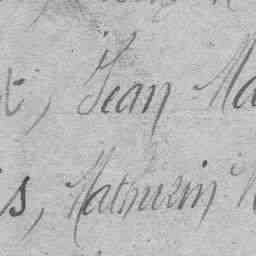 t, Jean Ma
s, Mathurin